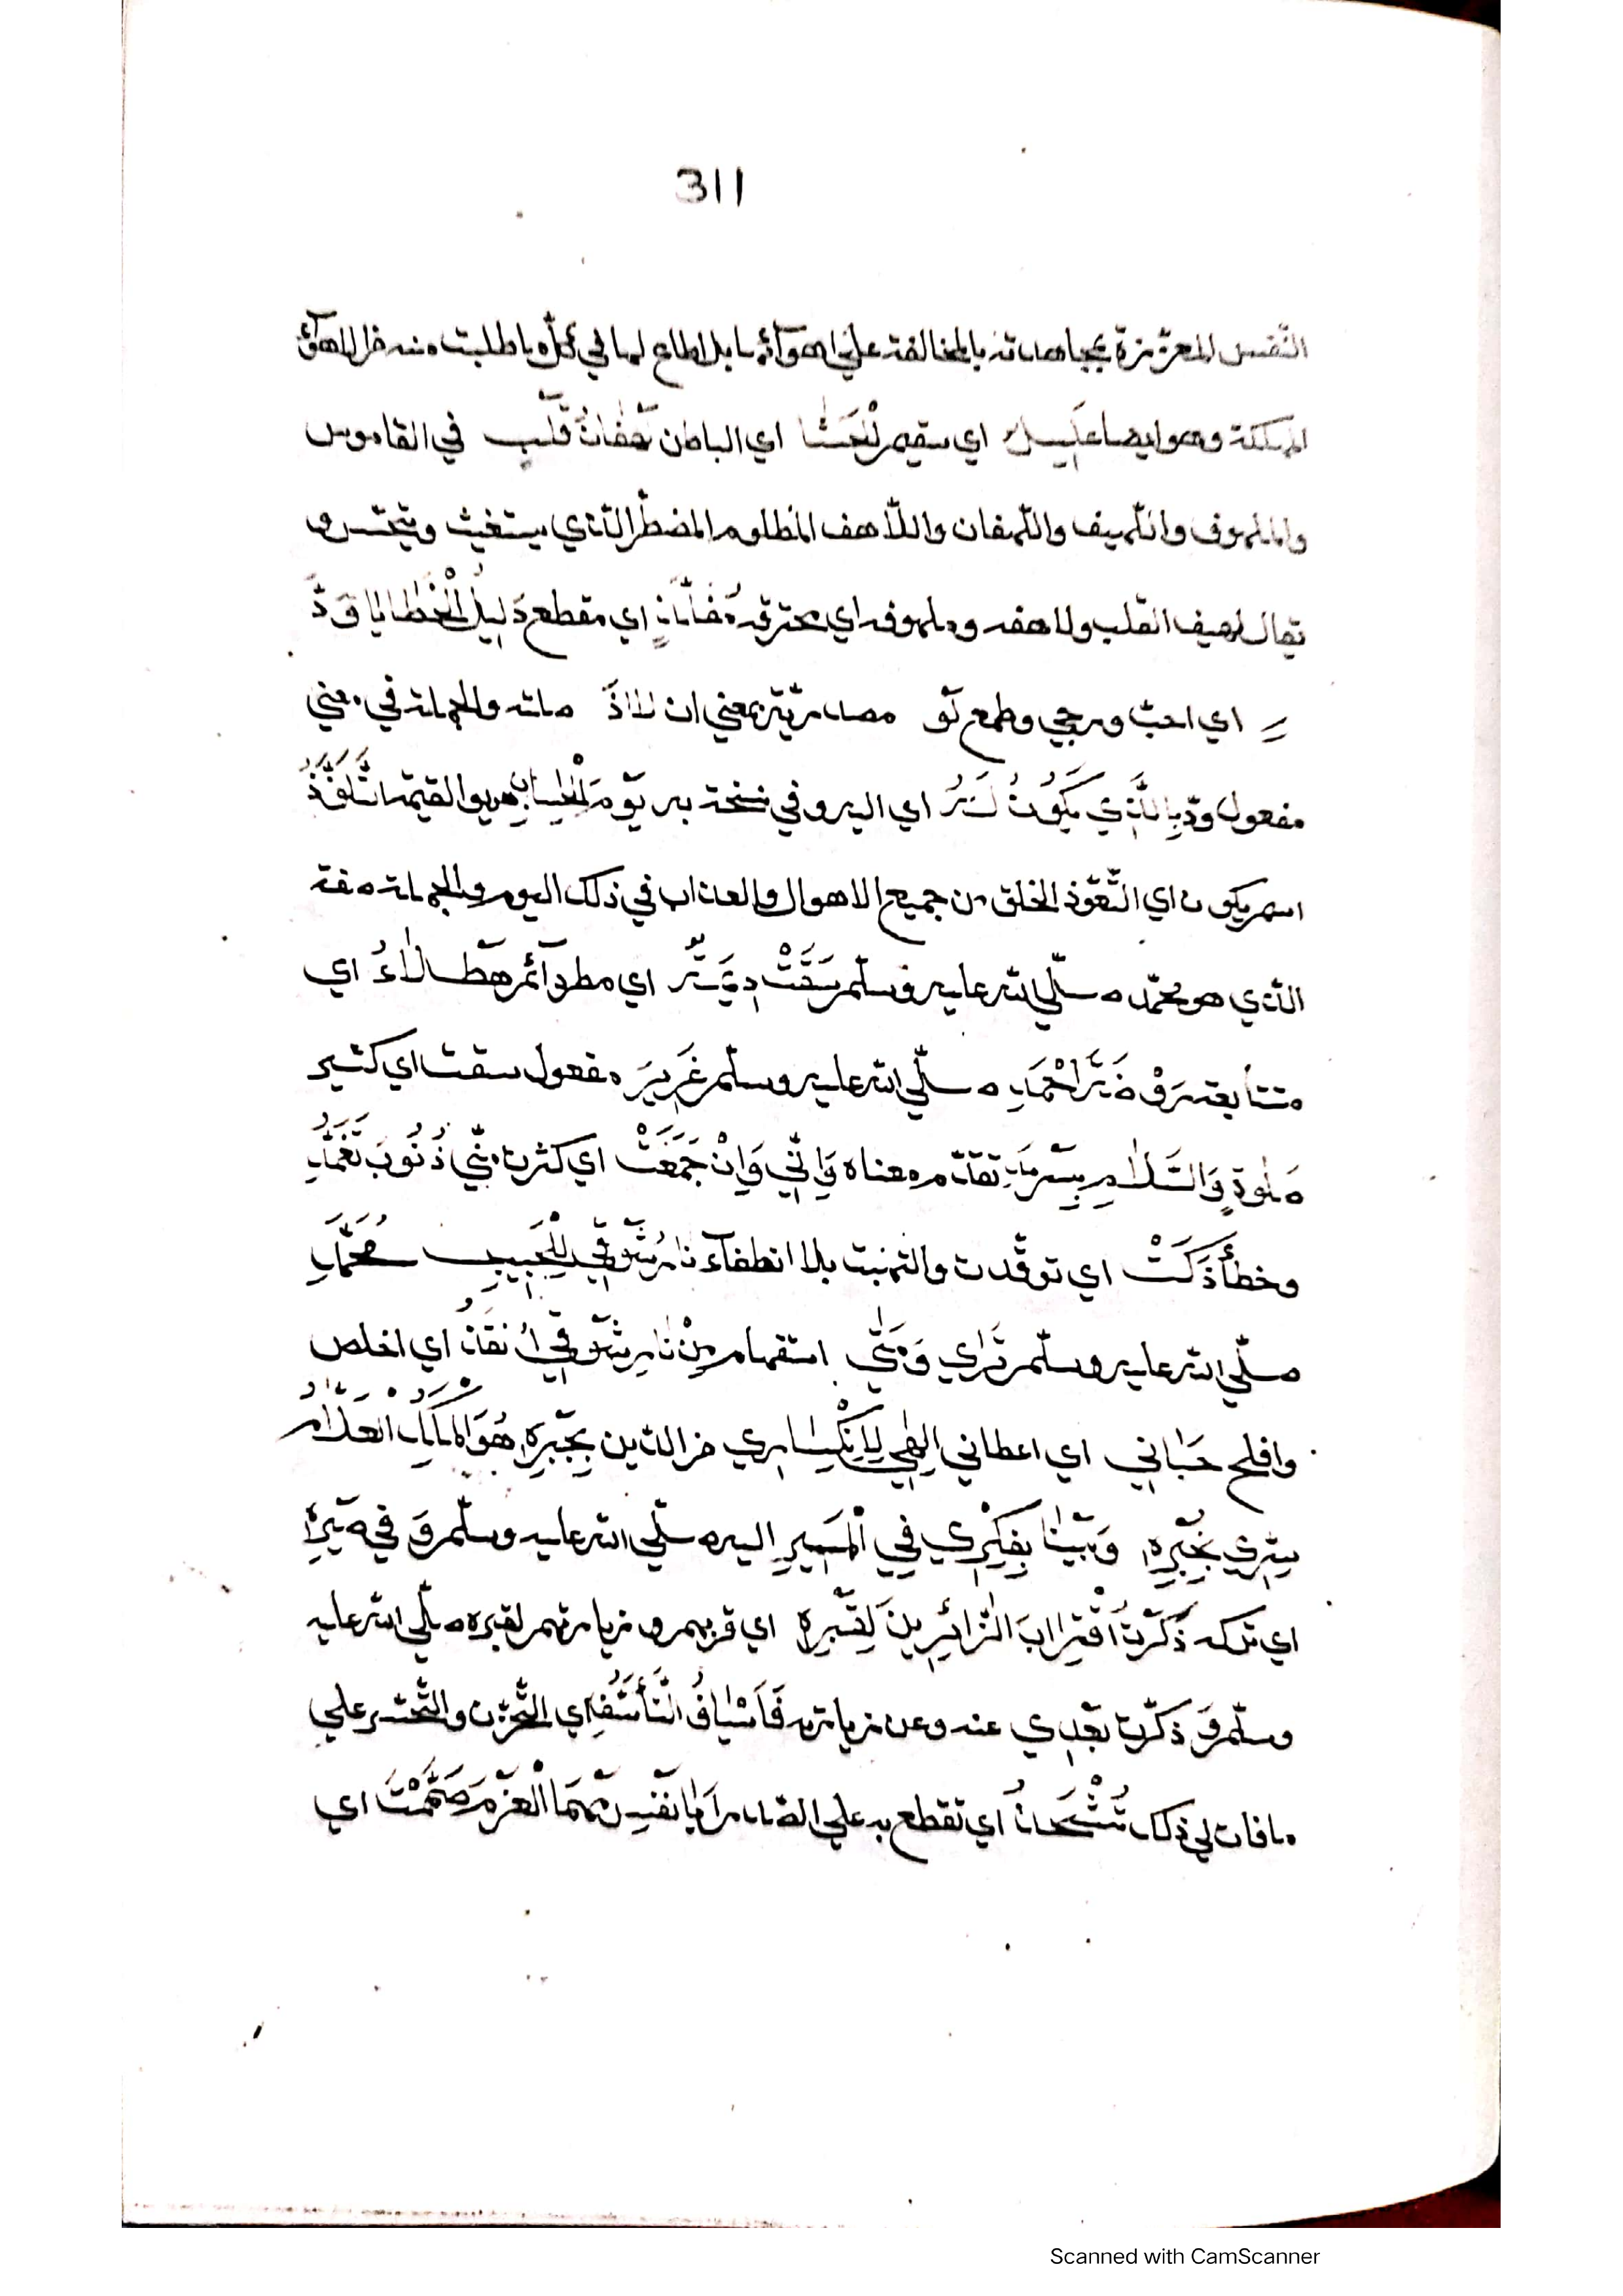 311
النّفس المعزّزة بمجاهدته بالمخالفة علي اهوآئها بل اطاع لها في كلّ ما طلبت منه من الاهوآء
المهلكة وهو ايضا عَلِيلُ اي سقيم الْحَشَا اي الباطن لَهْفَانُ قَلْبٍ في القاموس
والملهوف واللّهيف واللّهفان واللّاهف المظلوم المضطرّ الّذي يستغيث ويتحسّر و
يقال لهيف القلب ولاهفه وملهوفه اي محترقه اي مقطع دَلِيلُ الْخَطَايَا وَدَّ
اي احبّ ورجي وطمع لَوْ مصدريّة بمعني ان لَاذَ صلته والجملة في معني
مفعول ودّ بِالَّذِي يَكُونُ لَهُ اي اليه وفي نسخة به يَوْمَ الْحِسَابِ هو يوم القيمة التَّعَوُّذُ
اسم يكون اي التّعوّذ الخلق من جميع الاهوال والعذاب في ذلك اليوم والجملة صفة
الّذي هو محمّد صلّي الله عليه وسلّم سَقَتْ دِيمَةٌ اي مطر دآئم هَطْلَاءُ اي
متتابعة رَوْضَةَ احْمَدٍ صلّي الله عليه وسلّم غَزِيرَ مفعول سقت اي كثير
صَلٰوةٍ وَالسَّلَامِ بِسَرْمَدٍ تقدّم معناه وَإِنِّي وَإِنْ جَمَعَتْ اي كثرت منّي ذُنُوبَ تَعَمُّدٍ
وخطأ ذَكَتْ اي توقّدت والتهبت بلا انطفآء نَارُ شَوْقِي لِلْحَبِيبِ مُحَمَّدٍ
صلّي الله عليه وسلّم تُرَاي وَمَتٰي استفهام مِنْ نَارِ شَوْقِي أُنْقَذُ اي اخلص
وافلح حَبَانِي اي اعطاني إِلٰهِي لِانْكِسَارِي من الدّين بِجَبْرِهِ هُوَ الْمَلِكُ الْعَلَّامُ
سِرِّي بِخُبْرِهِ وَبَيْنَا بِفِكْرِي فِي الْمَسِيرِ اليه صلّي الله عليه وسلّم وَ فِي
اي تركه ذَكَرْتُ اقْتِرَابَ الزَّائِرِينَ لِقَبْرِهِ اي قربهم و زيارتهم لقبره صلّي الله عليه
وسلّم وَ ذكرت بُعْدِي عنه وعن زيارته فَأَسْيَافُ التَّأَسُّفِ اي التّحزّن والتّحسّر علي
ما فات لي ذلك تُشْحَذُ اي تقطع به علي الصّدر أَيَا نَفْسِ مَهْمَا الْعَزْمَ صَمَّمْتَ اي
Scanned with CamScanner